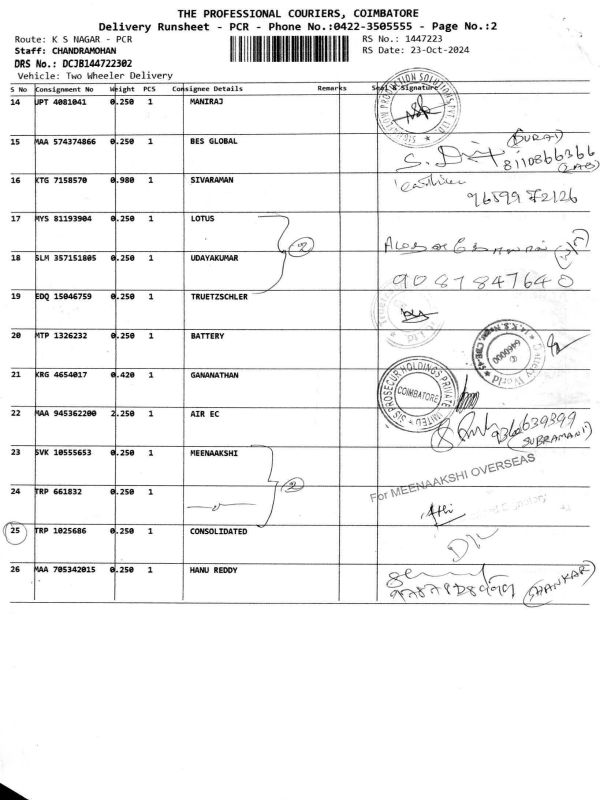 THE PROFESSIONAL COURIERS, COIMBATORE
Delivery Runsheet - PCR - Phone No.:0422-3505555 - Page No.:2
Route: K S NAGAR - PCR RS No.: 1447223
Staff: CHANDRAMOHAN RS Date: 23-Oct-2024
DRS No.: DCJB144722302
Vehicle: Two Wheeler Delivery
S No Consignment No Weight PCS Consignee Details Remarks Seal & Signature
14 JPT 4081041 0.250 1 MANIRAJ
15 MAA 574374866 0.250 1 BES GLOBAL
(DURAI)
8110866366
16 KTG 7158570 0.980 1 SIVARAMAN
96599 72126
17 MYS 81193904 0.250 1 LOTUS
2
18 SLM 357151805 0.250 1 UDAYAKUMAR
9087847640
19 EDQ 15046759 0.250 1 TRUETZSCHLER
20 MTP 1326232 0.250 1 BATTERY
Battery World
21 KRG 4654017 0.420 1 GANANATHAN
SIS PROSECUR HOLDINGS PRIVATE LIMITED
COIMBATORE
22 MAA 945362200 2.250 1 AIR EC
9360639399
(SUBRAMANI)
23 SVK 10555653 0.250 1 MEENAAKSHI
For MEENAAKSHI OVERSEAS
2
24 TRP 661832 0.250 1
25 TRP 1025686 0.250 1 CONSOLIDATED
26 MAA 705342015 0.250 1 HANU REDDY
(SHANKAR)